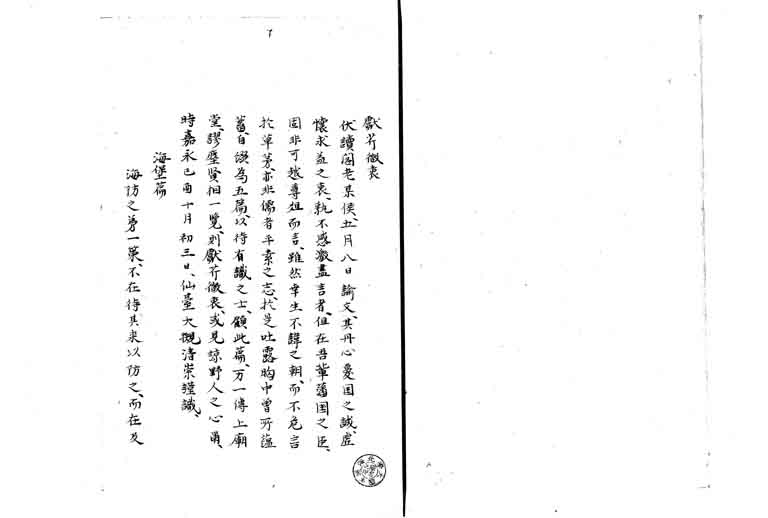 獻芹微衷
伏讀閣老某侯、五月八日諭文、其丹心憂国之誠、虚
懷求益之衷、孰不感激盡言者、但在吾輩藩国之臣、
固非可越尊俎而言、雖然幸生不諱之朝、而不危言
於草莽、亦非儒者平素之志、於是吐露胸中曾所蘊
蓄、自錣為五篇、以待有識之士、顧此篇、万一傳上廟
堂、謬塵賢相一覽、則獻芹微衷、或見諒野人之心焉、
時嘉永己酉十月初三日、仙臺大槻清崇謹識、
海堡篇
海防之第一策、不在待其来以防之、而在及